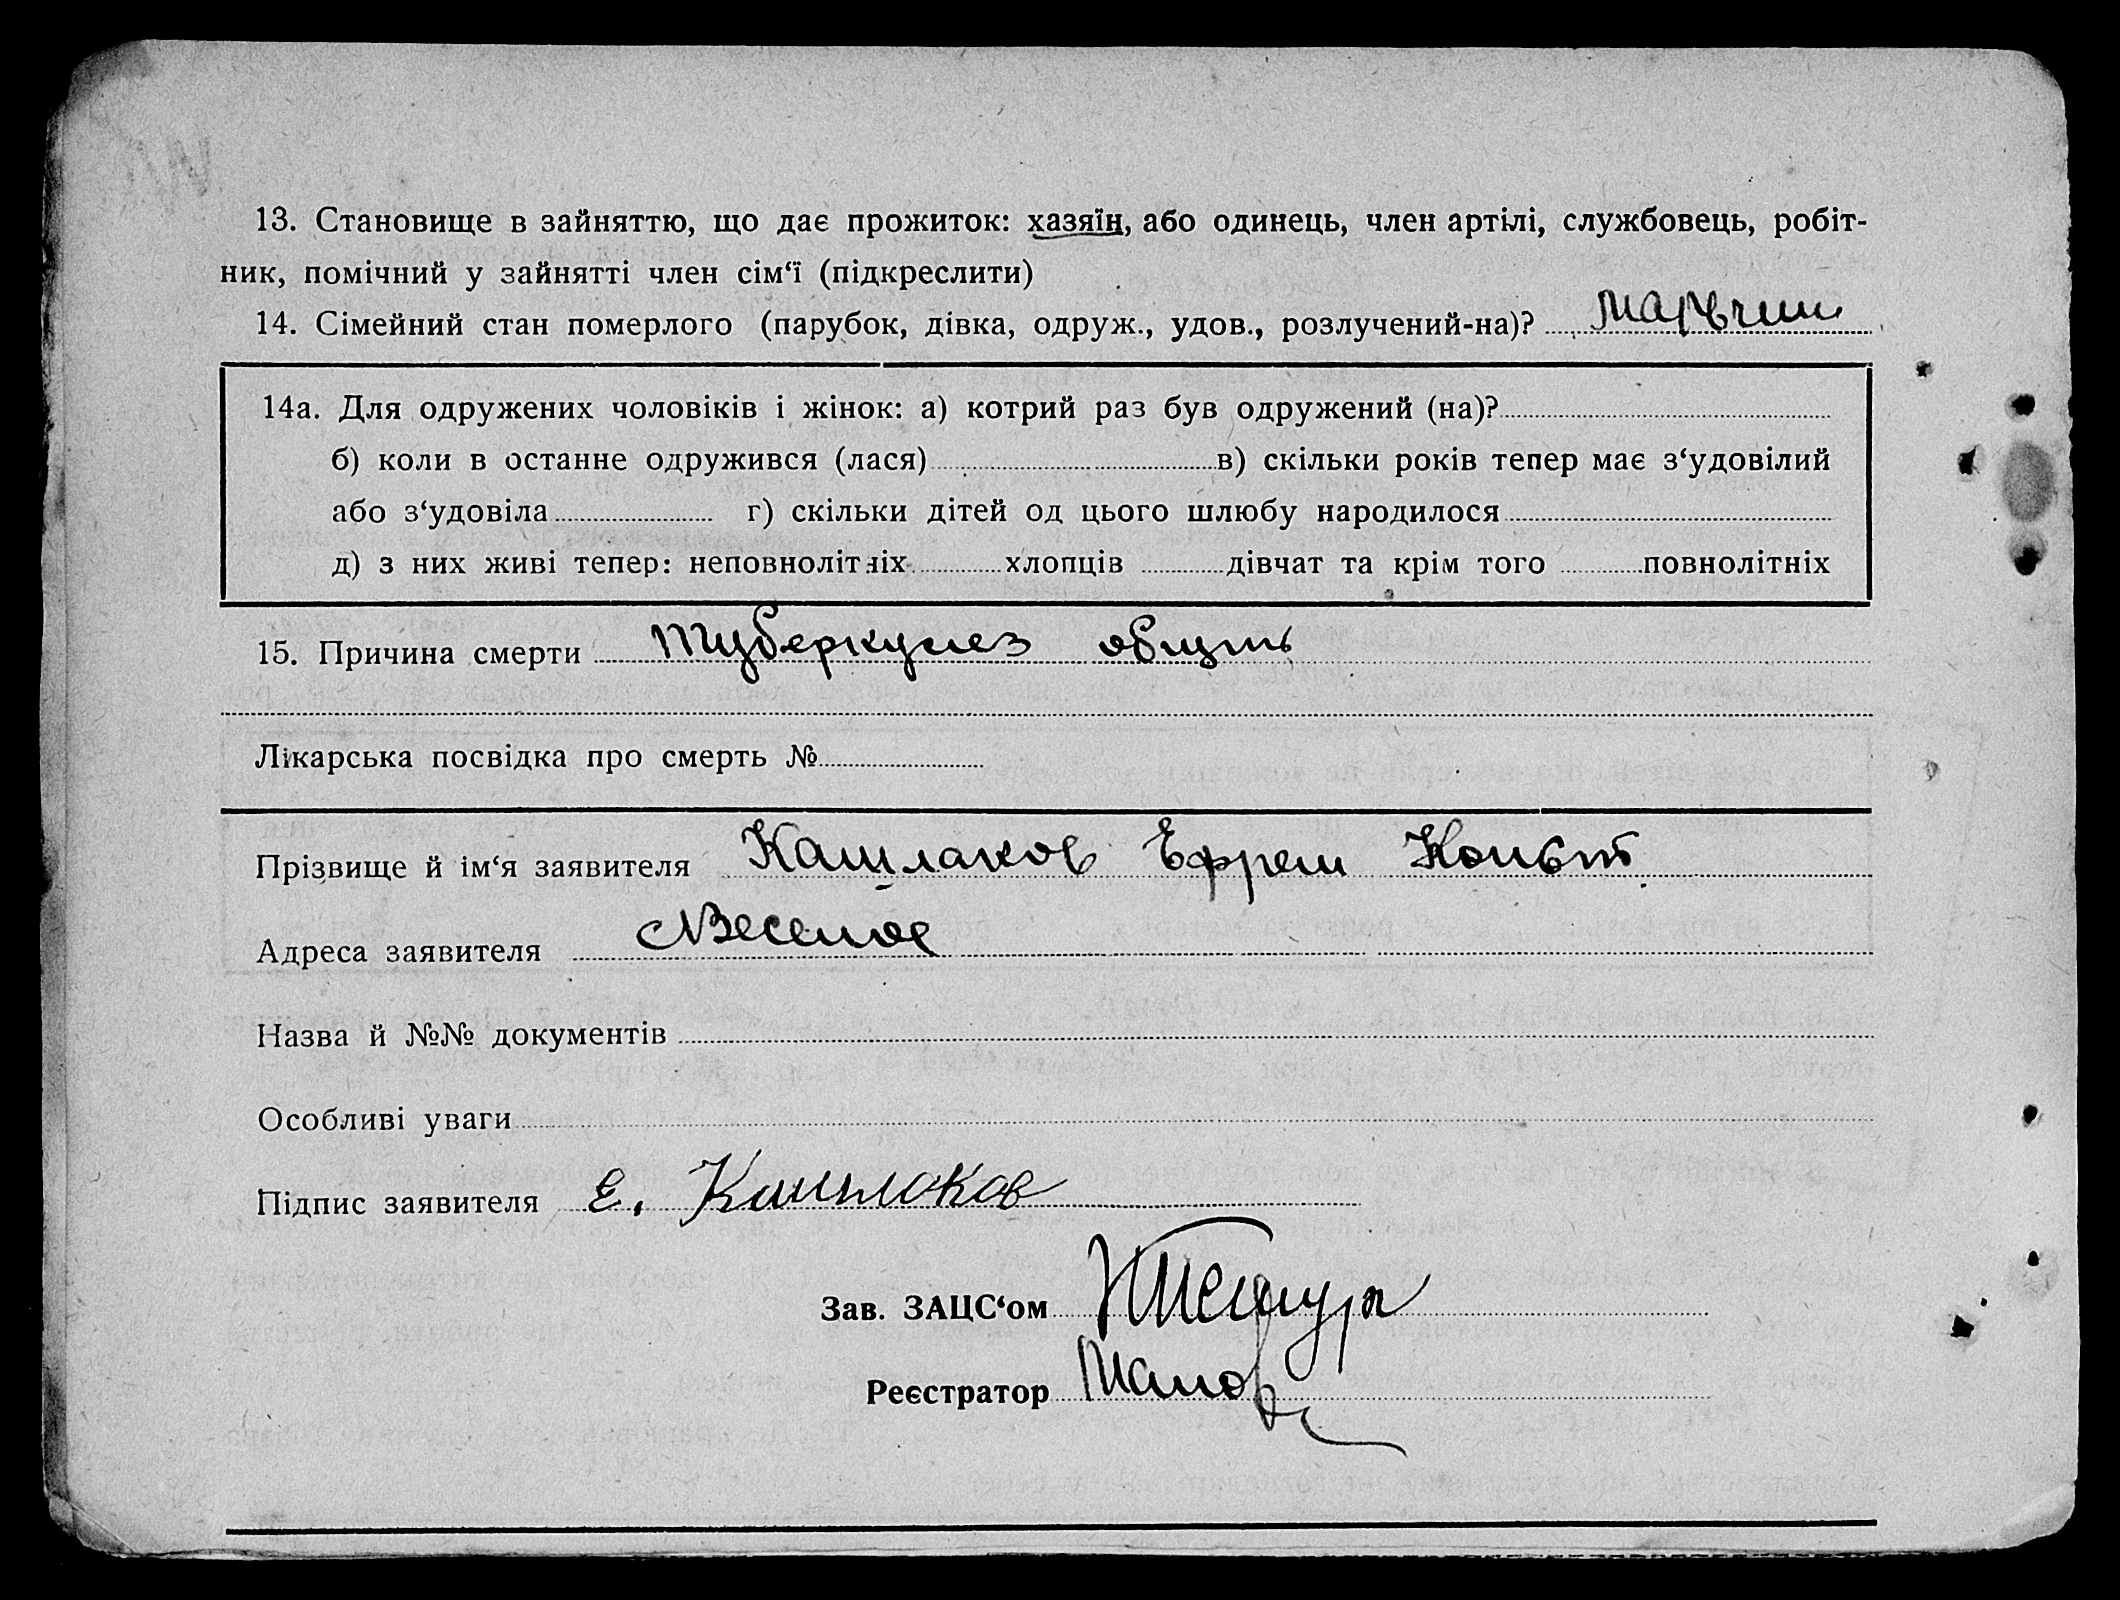 13. Становище в зайняттю, що дає прожиток: хазяїн, або одинець, член артілі, службовець, робіт-
ник, помічний у зайнятті член сім‘ї (підкреслити)
14. Сімейний стан померлого (парубок, дівка, одруж., удов., розлучений-на)?
14а. Для одружених чоловіків і жінок: а) котрий раз був одружений (на)?
б) коли в останне одружився (лася) в) скільки років тепер має з‘удовілий
або з‘удовіла г) скільки дітей од цього шлюбу народилося
д) з них живі тепер: неповнолітніх хлопців дівчат та крім того повнолітніх
15. Причина смерти Туберкулез
Лікарська посвідка про смерть №
Прізвище й ім‘я заявителя Кашлаков Ефрем
Адреса заявителя с Веселое
Назва й №№ документів
Особливі уваги
Підпис заявителя Е. Кашлаков
Зав. ЗАЦС‘ом
Реєстратор